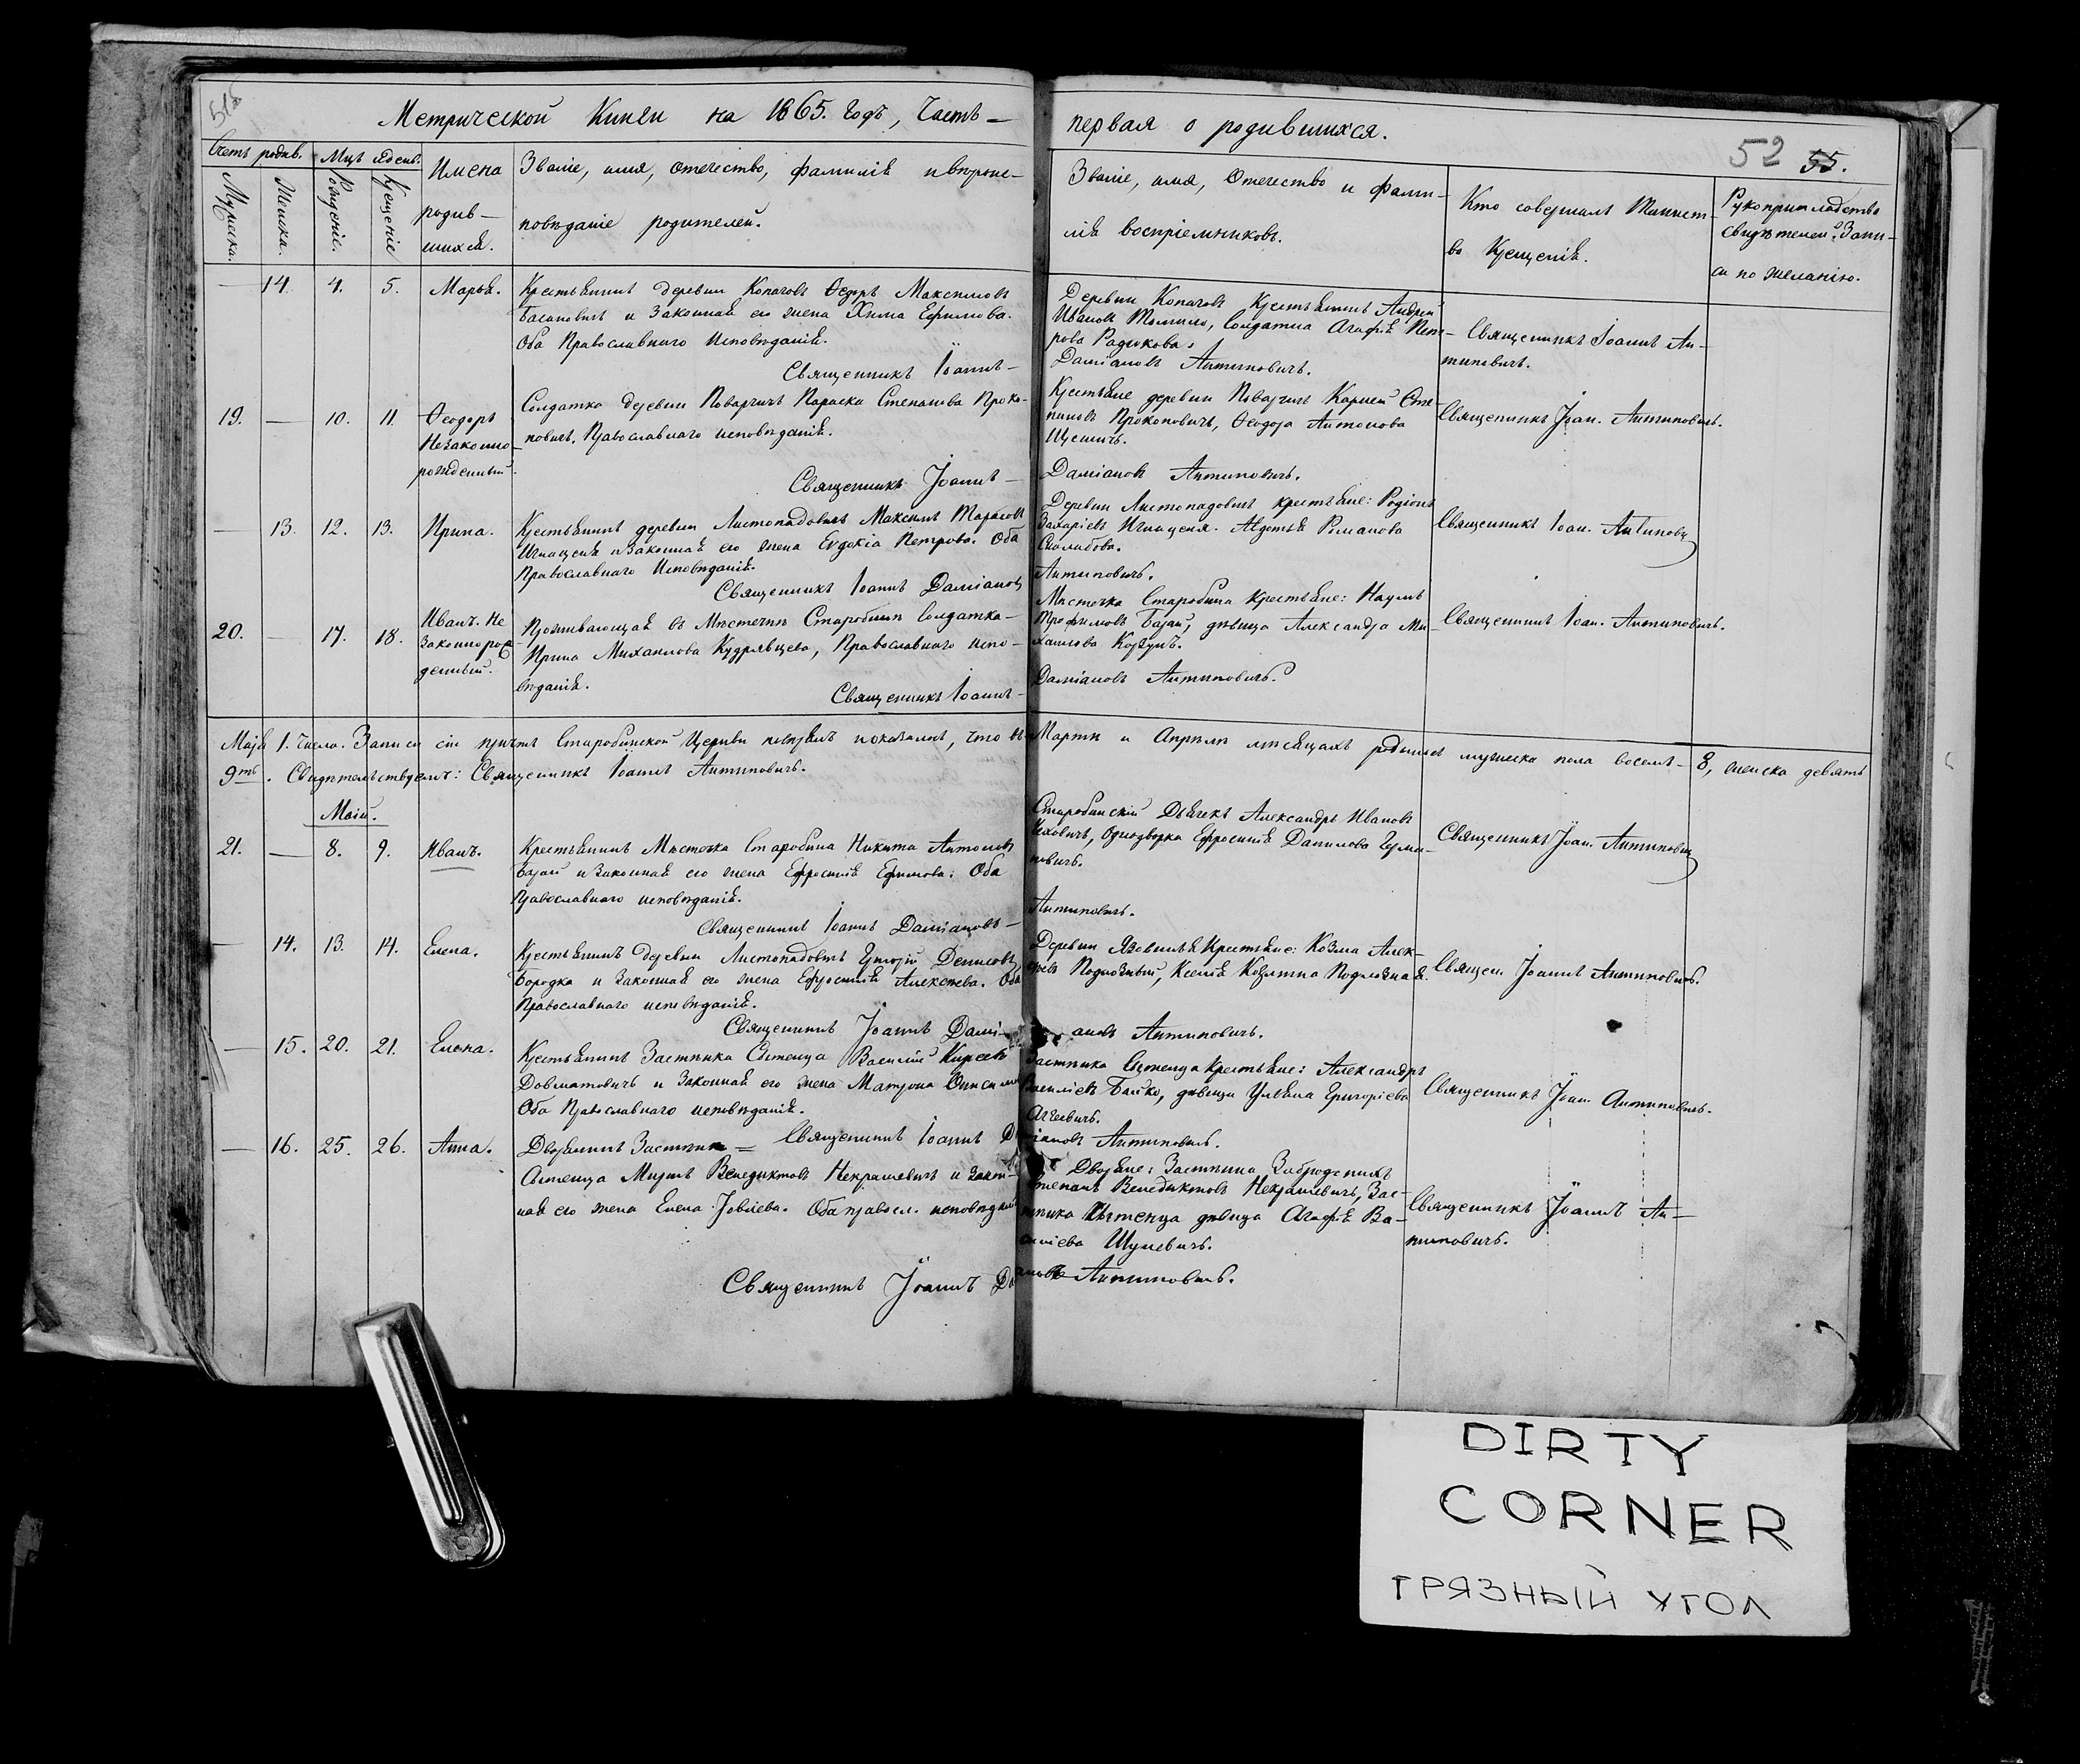 51об
Метрической Книги на 1865. Годъ, Часть —
первая о родившихся.
52 55.
Счетъ родив.
Мужеска.
Женска.
Мцъ и день.
Рожденіе.
Крещеніе
Имена
родив-
шихся.
Званіе, имя, отечество, фамилія и вѣроис-
повѣданіе родителей.
Званіе, имя, Отечество и фами-
лія воспріемниковъ.
Кто совершалъ Таинст-
во Крещенія.
Рукоприкладство
свидѣтелей Запи-
си по желанію.
— 14. 4. 5. Марья.
Крестьянинъ деревни Копачовъ Ѳедоръ Максимовъ
и Законная его жена Хима Ефимова.
Оба Православнаго Исповѣданія.
Священникъ Іоаннъ —
Деревни Копачовъ Крестьянинъ Андрей
Ивановъ Солдатка Агафія Пет-
рова Радюкова.
Даміановъ Антиповичъ.
Священникъ Іоаннъ Ан-
типовичъ.
19. — 10. 11. Ѳеодоръ
Незаконно-
рожденный.
Солдатка деревни Поварчичъ Параска Степанова Проко-
повичъ, Православнаго исповѣданія.
Священникъ Іоаннъ —
Крестьяне деревни Поварчичъ Карней Сте-
пановъ Прокоповичъ, Ѳеодора Антонова
Даміановъ Антиповичъ.
Священникъ Іоан. Антиповичъ.
— 13. 12. 13. Ирина.
Крестьянинъ деревни Листопадовичъ Максимъ Тарасовъ
Игнаценя и Законная его жена Евдокіа Петрова. Оба
Православнаго Исповѣданія.
Священникъ Іоаннъ Даміановъ
Деревни Листопадовичъ крестьяне: Родіонъ
Захаріевъ Игнаценя. Авдотья Романова
Антиповичъ.
Священникъ Іоан. Антиповичъ
20. — 17. 18. Иванъ. Не
законнорож-
денный.
Проживающая въ Мѣстечкѣ Старобинѣ Солдатка —
Ирина Михаилова Кудрявцева, Православнаго испо-
вѣданія.
Священникъ Іоаннъ —
Мѣстечка Старобина Крестьяне: Наумъ
Трофимовъ Баран, дѣвица Александра Ми-
хаилова Корзунъ.
Даміановъ Антиповичъ.
Священникъ Іоан. Антиповичъ.
Маія 1. Числа. Записи сіи причтъ Старобинской Церкви повѣрялъ и оказалось, что въ Мартѣ и Апрѣлѣ мѣсяцахъ родилось мужеска пола восемь — 8, женска девять
9ть. Свидѣтельствуемъ: Священникъ Іоаннъ Антиповичъ.
Маій.
21. — 8. 9. Иванъ.
Крестьянинъ Мѣстечка Старобина Никита Антоновъ
Баран и Законная его жена Ефросинія Ефимова. Оба
Православнаго исповѣданія.
Священникъ Іоаннъ Даміановъ —
Старобинскій Дьячекъ Александръ Ивановъ
Однодворка Ефросинія Данилова
Антиповичъ.
Священникъ Іоан. Антиповичъ
— 14. 13. 14. Елена.
Крестьянинъ деревни Листопадовичъ Григорій Денисовъ
Бородка и Законная его жена Ефросинія Алексѣева. Оба
Православнаго исповѣданія.
Священникъ Іоаннъ Дамі-
Деревни Язвинѣ Крестьяне: Козма Алек-
сѣевъ Подлозный, Ксенія Козьмина Подлозная.
ановъ Антиповичъ.
Священ. Іоаннъ Антиповичъ.
— 15. 20. 21. Елена.
Крестьянинъ Застѣнка Сѣтенца Василій Киреевъ
Довматовичъ и Законная его жена Матрона
Оба Православнаго исповѣданія.
Священникъ Іоаннъ Даміановъ Антиповичъ.
Застѣнка Сѣтенца крестьяне: Александръ
Василіевъ Бойко, дѣвица Ульяна Григоріева
Священникъ Іоан. Антиповичъ.
— 16. 25. 26. Анна.
Дворянинъ Застѣнка
Сѣтенца Миронъ Венедиктовъ Некрашевичъ и Закон-
ная его жена Елена Іовлева. Оба правосл. исповѣданія
Священникъ Іоаннъ Даміановъ Антиповичъ.
Дворяне: Застѣнка
Степанъ Венедиктовъ Некрашевичъ, Зас-
тѣнка Сѣтенца дѣвица Агафія Ва-
силіева Шулевичъ.
Священникъ Іоаннъ Ан-
типовичъ.
DIRTY
CORNER
ГРЯЗНЫЙ УГОЛ